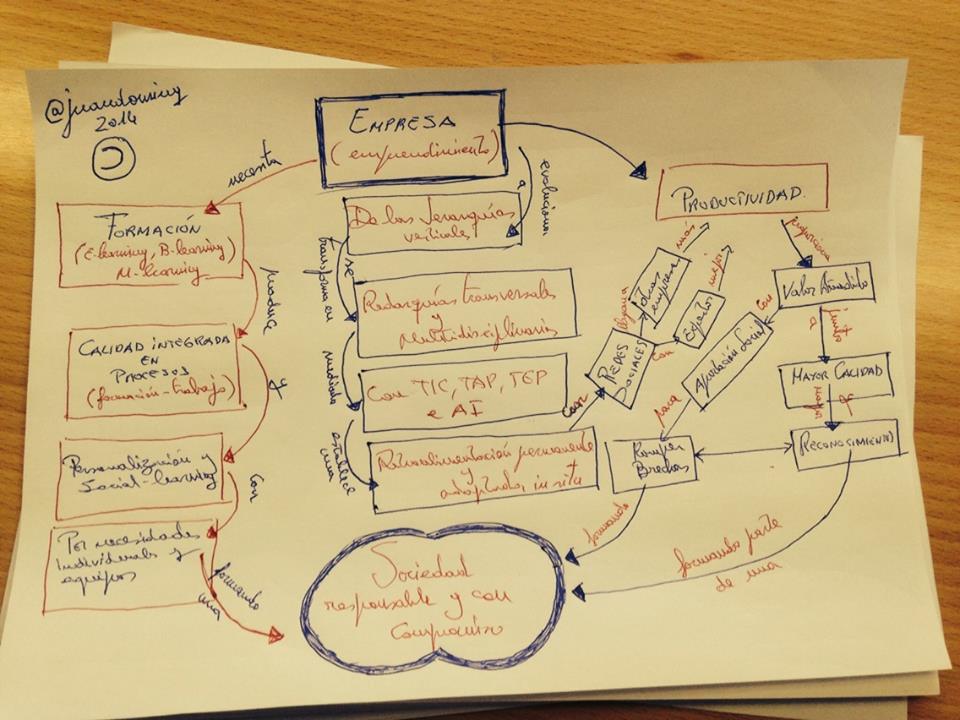 @juandoming
2014
EMPRESA
(emprendimiento)
necesita
evoluciona
a
FORMACIÓN
(E-learning, B-learning
M-learning
produce
CALIDAD INTEGRADA
EN
PROCESOS
(formación-trabajo)
y
Personalización y
Social-learning
con
Por necesidades
Individuales y
equipos
formando
una
De las Jerarquías
verticales
se
transforma en
Redarquías transversales
y
Multidisciplinarias
mediada
Con TIC, TAP, TEP
e AI
establece
una
Retroalimentación permanente
y
adaptada, in situ
con
REDES
SOCIALES
otras
empresas
más
con
Espacios
mejor
PRODUCTIVIDAD
Valor Añadido
con
Aportación Social
para
Romper
Brechas
formando
junto
a
MAYOR CALIDAD
y
mayor
RECONOCIMIENTO
formando parte
de una
Sociedad
responsable y con
Compromiso